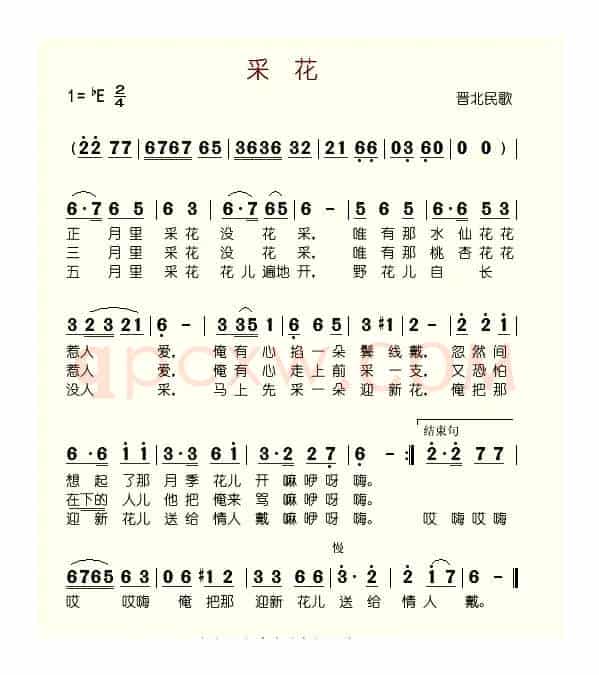 采 花
1=♭E 2/4
晋北民歌
(2̇2̇ 77 | 6767 65 | 3636 32 | 21 6̣6̣ | 03̣ 6̣0 | 0 0 ) |
6·7 6 5 | 6 3 | 6·7 65 | 6 – | 5 6 5 6 | 6 5 53 |
正 月 里 采 花 没 花 采, 唯 有 那 水 仙 花 花
三 月 里 采 花 没 花 采, 唯 有 那 桃 杏 花 花
五 月 里 采 花 花 儿 遍 地 开, 野 花 儿 自 长
3 2 3 21 | 6̣ – | 3 335 | 6̣ 6 5 | 3 #3 | 2 – | 2̇ 2̇ 1̇ |
惹人 爱, 俺 有 心 掐 一 朵 鬓 线 戴, 忽 然 间
惹人 爱, 俺 有 心 走 上 前 采 一 支, 又 恐 怕
没人 采, 马 上 先 采 一 朵 迎 新 花, 俺 把 那
结束句
6·6 1̇1̇ | 3·3 61̇ | 3·2 227̣ | 6̣ – :‖ 2̇·2̇ 77 |
想 起 了 那 月 季 花 儿 开 嘛 咿 呀 嗨。
在下的 人 儿 他 把 俺 来 骂 嘛 咿 呀 嗨。
迎 新 花 儿 送 给 情 人 戴 嘛 咿 呀 嗨。 哎 嗨 哎 嗨
慢
6765 3 3 | 06 #1̇2̇ | 3 3 6 1̇ | 3̇· 2̇ | 2̇ 1̇7 | 6 – ‖
哎 哎嗨 俺 把那 迎新 花儿 送 给 情 人 戴。